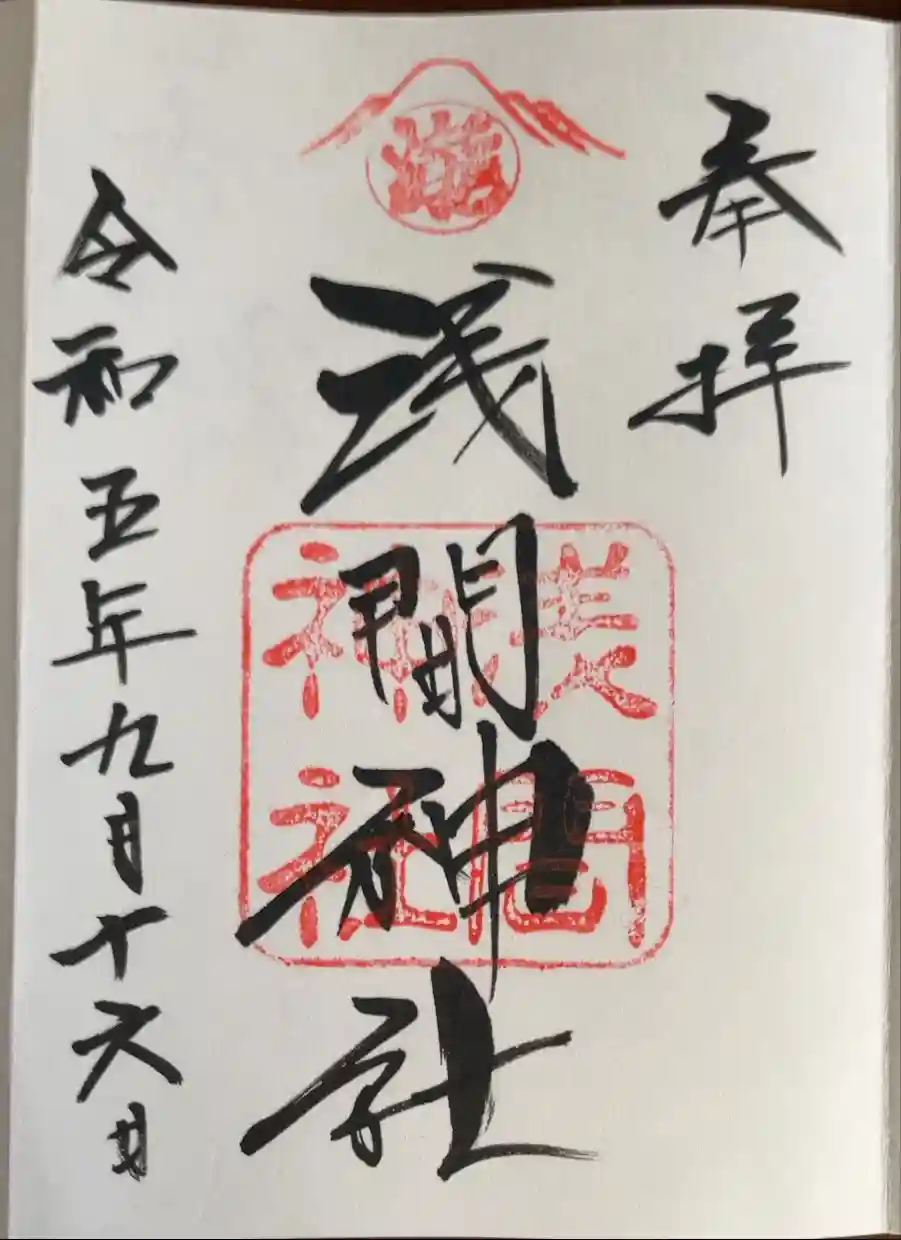 奉拝
浅間神社
浅間
神社
令和五年九月十六日